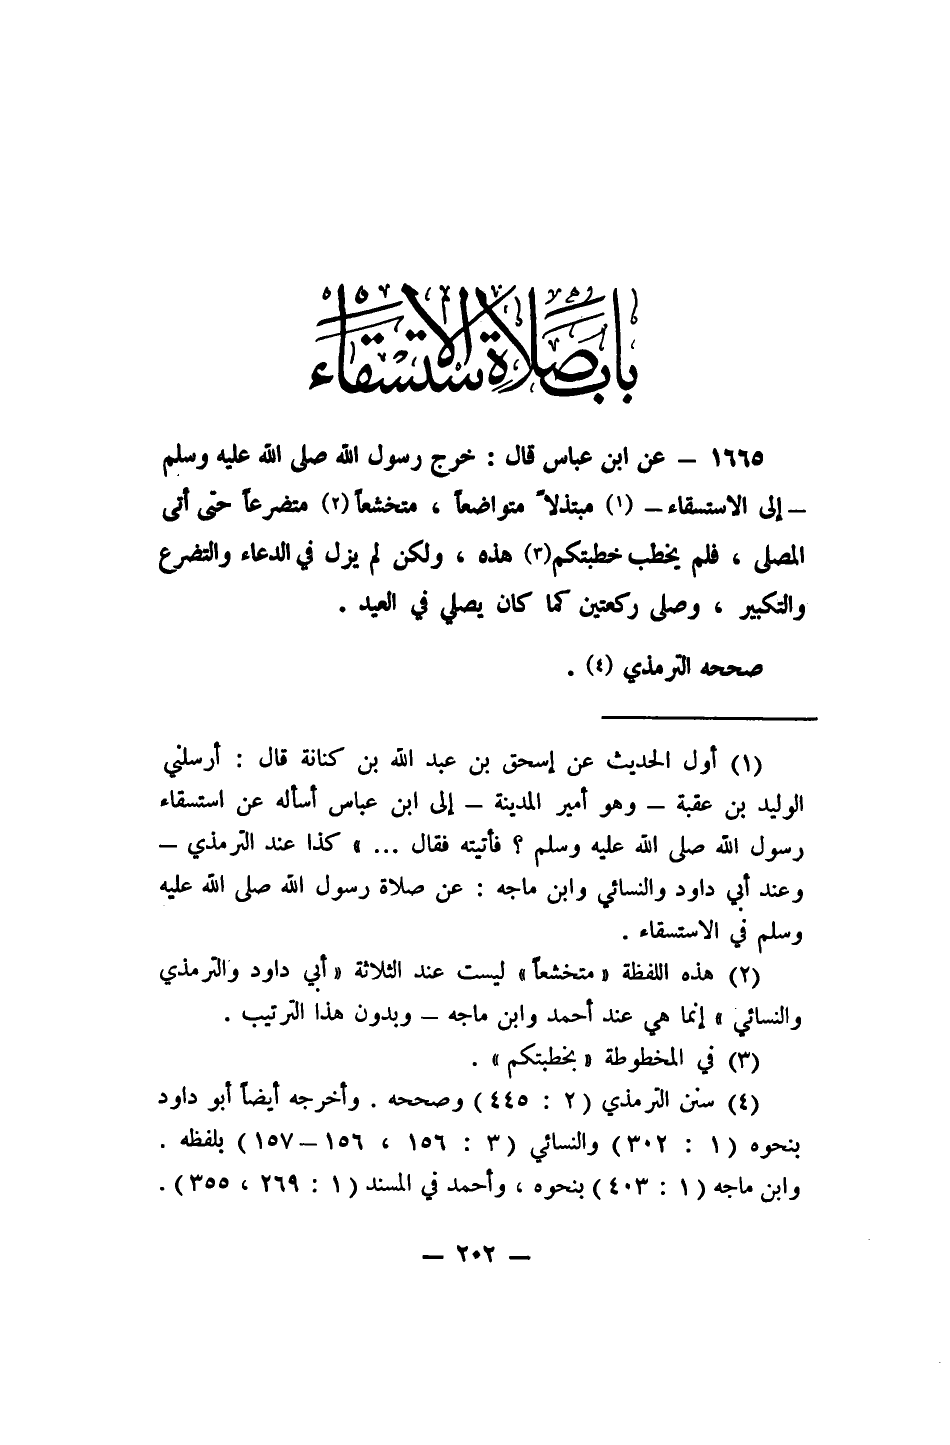 باب صلاة الاستسقاء
١٦٦٥ – عن ابن عباس قال : خرج رسول الله صلى الله عليه وسلم
– إلى الاستسقاء – (١) مبتذلاً متواضعاً ، متخشعاً (٢) متضرعاً حتى أتى
المصلى ، فلم يخطب خطبتكم(٣) هذه ، ولكن لم يزل في الدعاء والتضرع
والتكبير ، وصلى ركعتين كما كان يصلي في العيد .
صححه الترمذي (٤) .
(١) أول الحديث عن إسحق بن عبد الله بن كنانة قال : أرسلني
الوليد بن عقبة – وهو أمير المدينة – إلى ابن عباس أسأله عن استسقاء
رسول الله صلى الله عليه وسلم ؟ فأتيته فقال ... » كذا عند الترمذي –
وعند أبي داود والنسائي وابن ماجه : عن صلاة رسول الله صلى الله عليه
وسلم في الاستسقاء .
(٢) هذه اللفظة « متخشعاً » ليست عند الثلاثة « أبي داود والترمذي
والنسائي » إنما هي عند أحمد وابن ماجه – وبدون هذا الترتيب .
(٣) في المخطوطة « بخطبتكم » .
(٤) سنن الترمذي ( ٢ : ٤٤٥ ) وصححه . وأخرجه أيضاً أبو داود
بنحوه ( ١ : ٣٠٢ ) والنسائي ( ٣ : ١٥٦ ، ١٥٦ – ١٥٧ ) بلفظه .
وابن ماجه ( ١ : ٤٠٣ ) بنحوه ، وأحمد في المسند ( ١ : ٢٦٩ ، ٣٥٥ ) .
– ٢٠٢ –